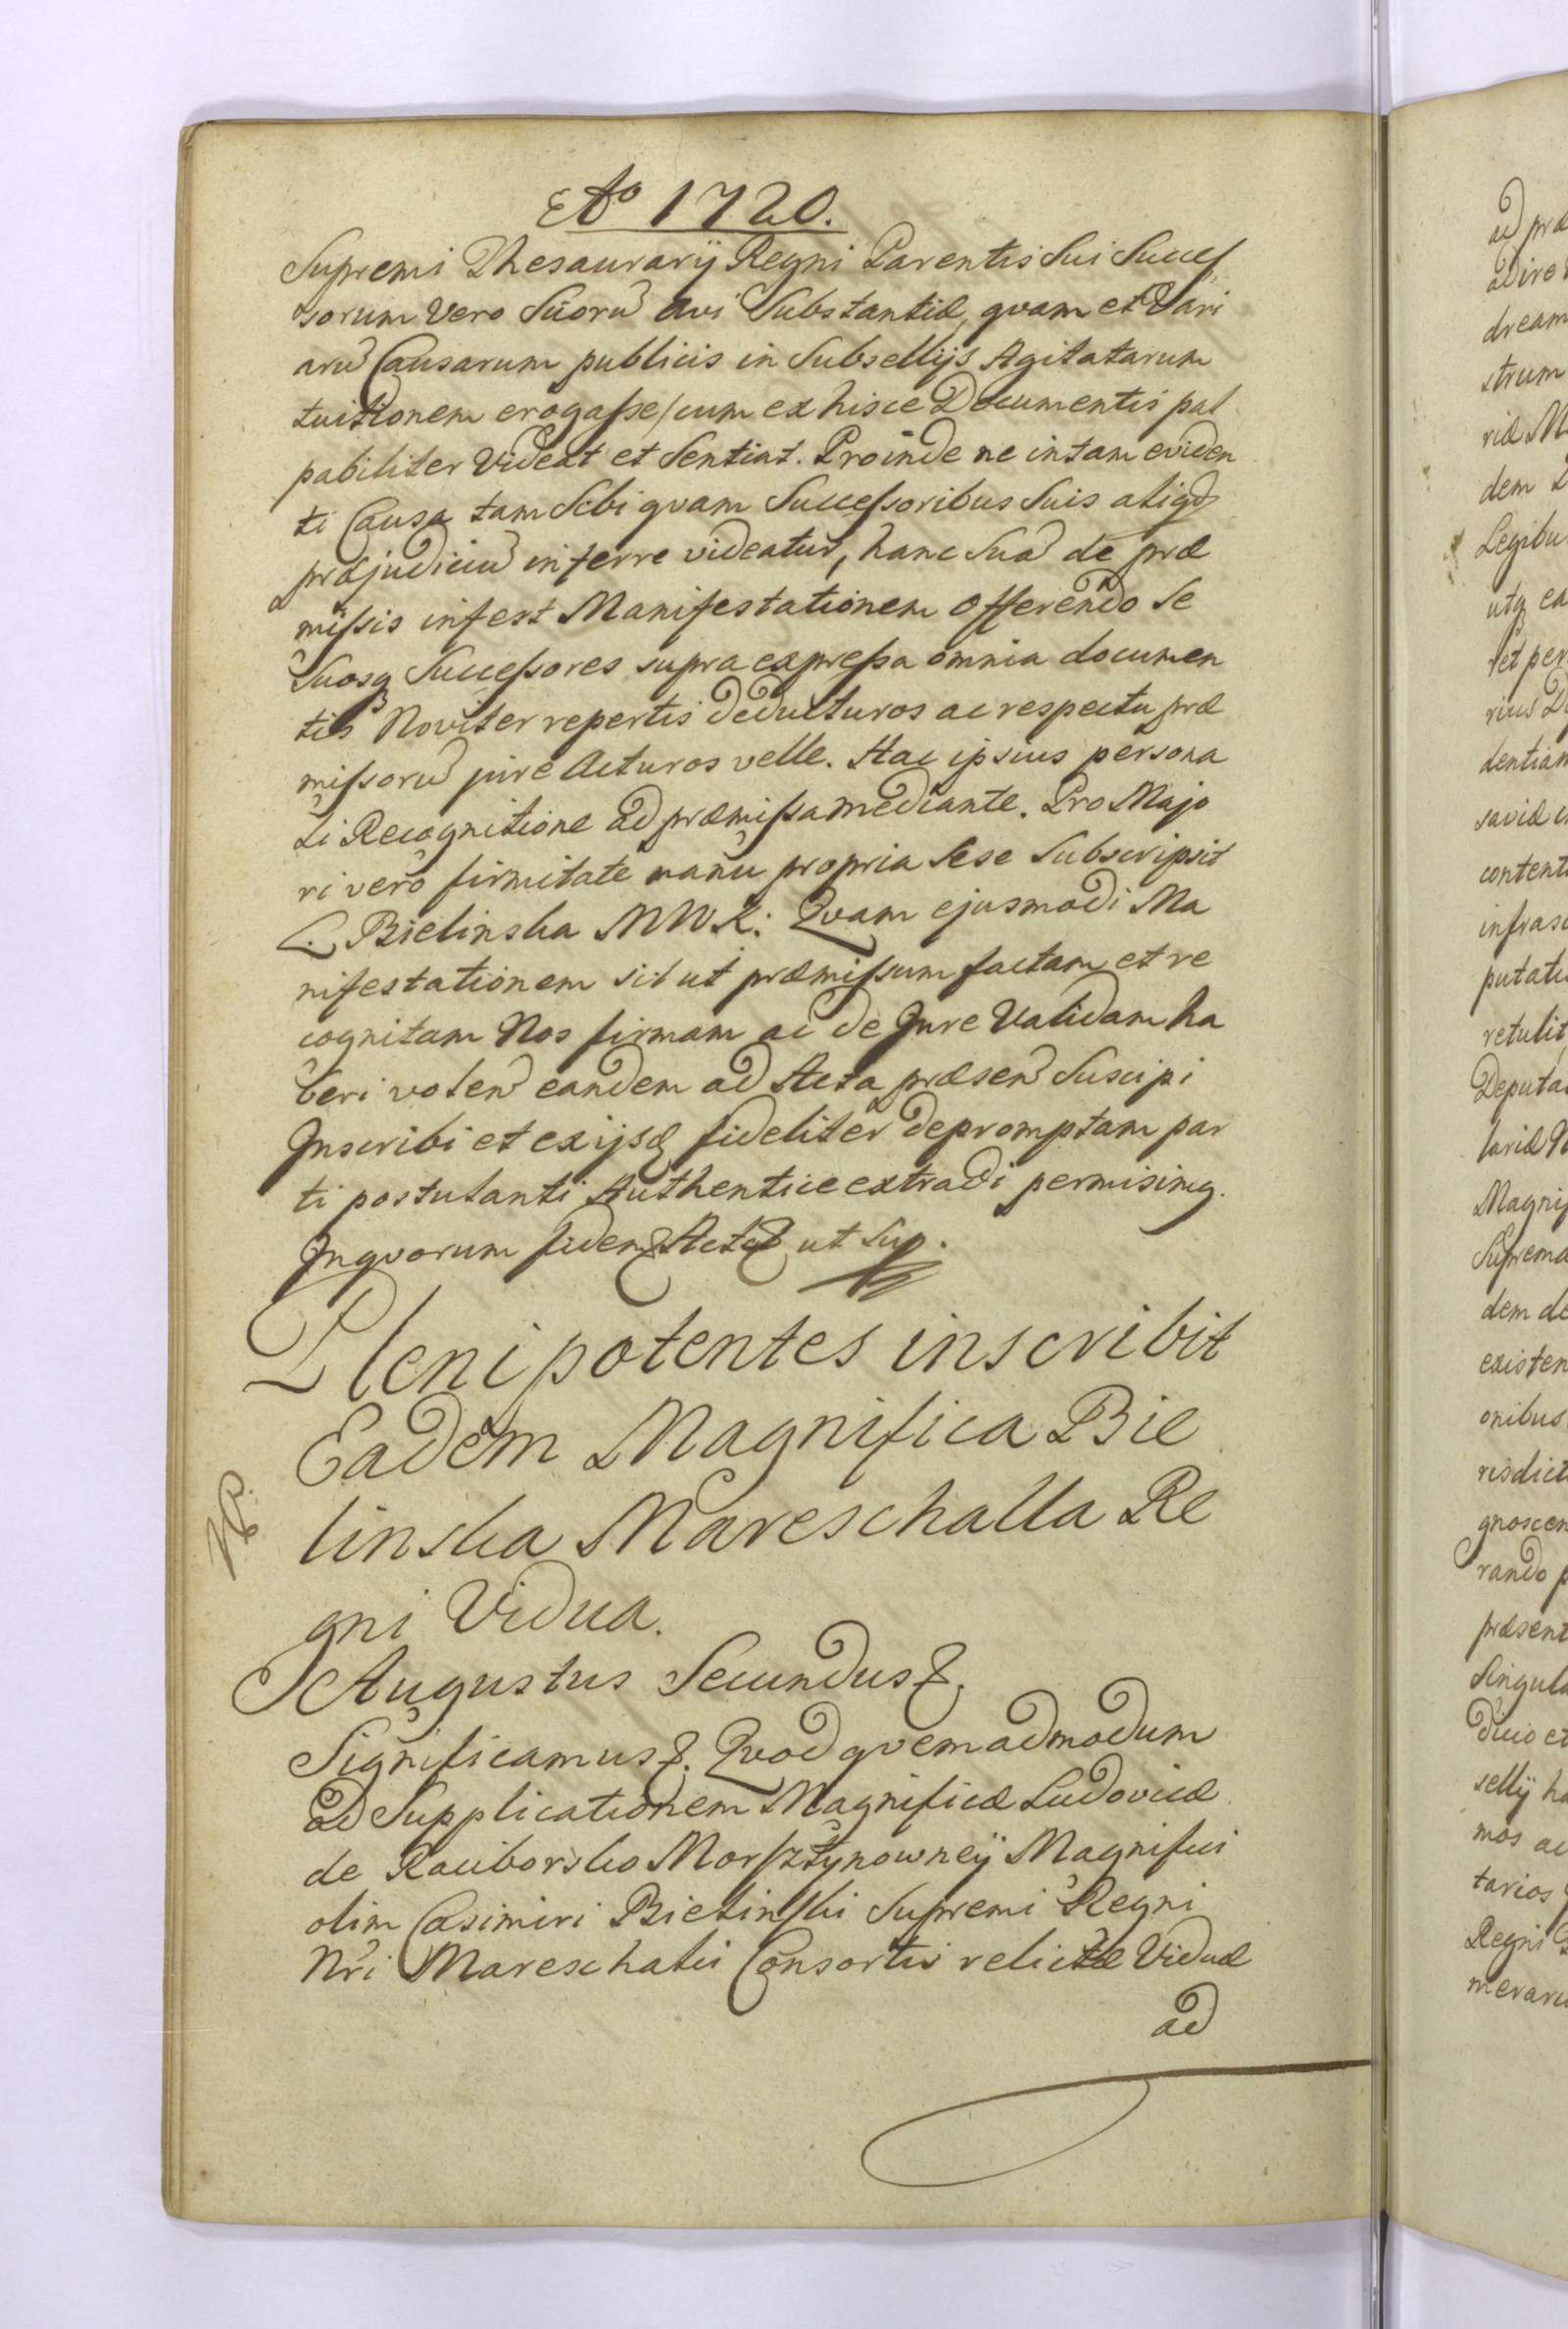 Aō 1720.
Supremi Thesaurarij Regni Parentis Sui Succes
sorum Vero Suorū avi Substantiæ, qvam et Vari
arū Causarum publicis in Subsellijs Agitatarum
tuitionem erogaſse/cum ex hisce Documentis pal
pabiliter Videat et Sentiat. Proinde ne in tam eviden
ti Causa tam Sibi qvam Succeſsoribus Suis aliqd
præjudiciū inferre videatur, hanc Suā de præ
miſsis infert Manifestationem Offerendo Se
Suosq Succeſsores supra expreſsa omnia documen
tis Noviter repertis deducturos ac respectu præ
miſsorū jure Acturos velle. Hac ipsius persona
li Recognitione ad præmiſsa mediante. Pro Majo
ri vero firmitate manu propria Sese Subscripsit
L. Bielinska M W K: Qvam ejusmodi Ma
nifestationem sic ut præmiſsum factam et re
cognitam Nos firmam ac de Jure Validam ha
beri volen eandem ad Acta præsen Suscipi
Inscribi et ex ijsd fideliter depromptam par
ti postulanti Authentice extradi permisimq.
In qvorum fidem & Act & ut Sup.
Plenipotentes inscribit
Eadem Magnifica Bie
linska Mareschalla Re
gni Vidua.
Augustus Secundus &.
Significamus &. Qvod qvemadmodum
ad Supplicationem Magnificæ Ludovicæ
de Raciborsko Morſztynowney Magnifici
olim Casimiri Bielinſki Supremi Regni
Nri Mareschalci Consortis relictæ Viduæ
ad
ad præ
dream
strum
dem
Legibu
utq ea
et per
dentiam
content
infras
putatu
retulit
Deputa
Magnif
Suprema
dem de
existen
onibus
risdict
gnoscen
rando p
præsent
Singula
dicio et
mos ac
tarios
Regni